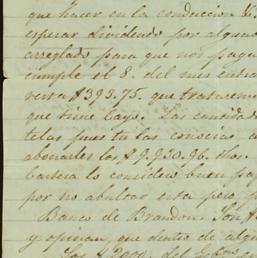 que hacer en la conducion. 
esperar dividendo por alguno
arreglado para que nos pagu
cumple el 8. del mes entra
reria $393.75. que trataremo
que tiene Cayo. Las cantida
telas pues tu las conocias
abonadas los $9.930.96. Hos.
lo considero buen pag
por no abultar esta pero
Banco de Brandon. Son
y opinan, que dentro de algu
los $2000. del